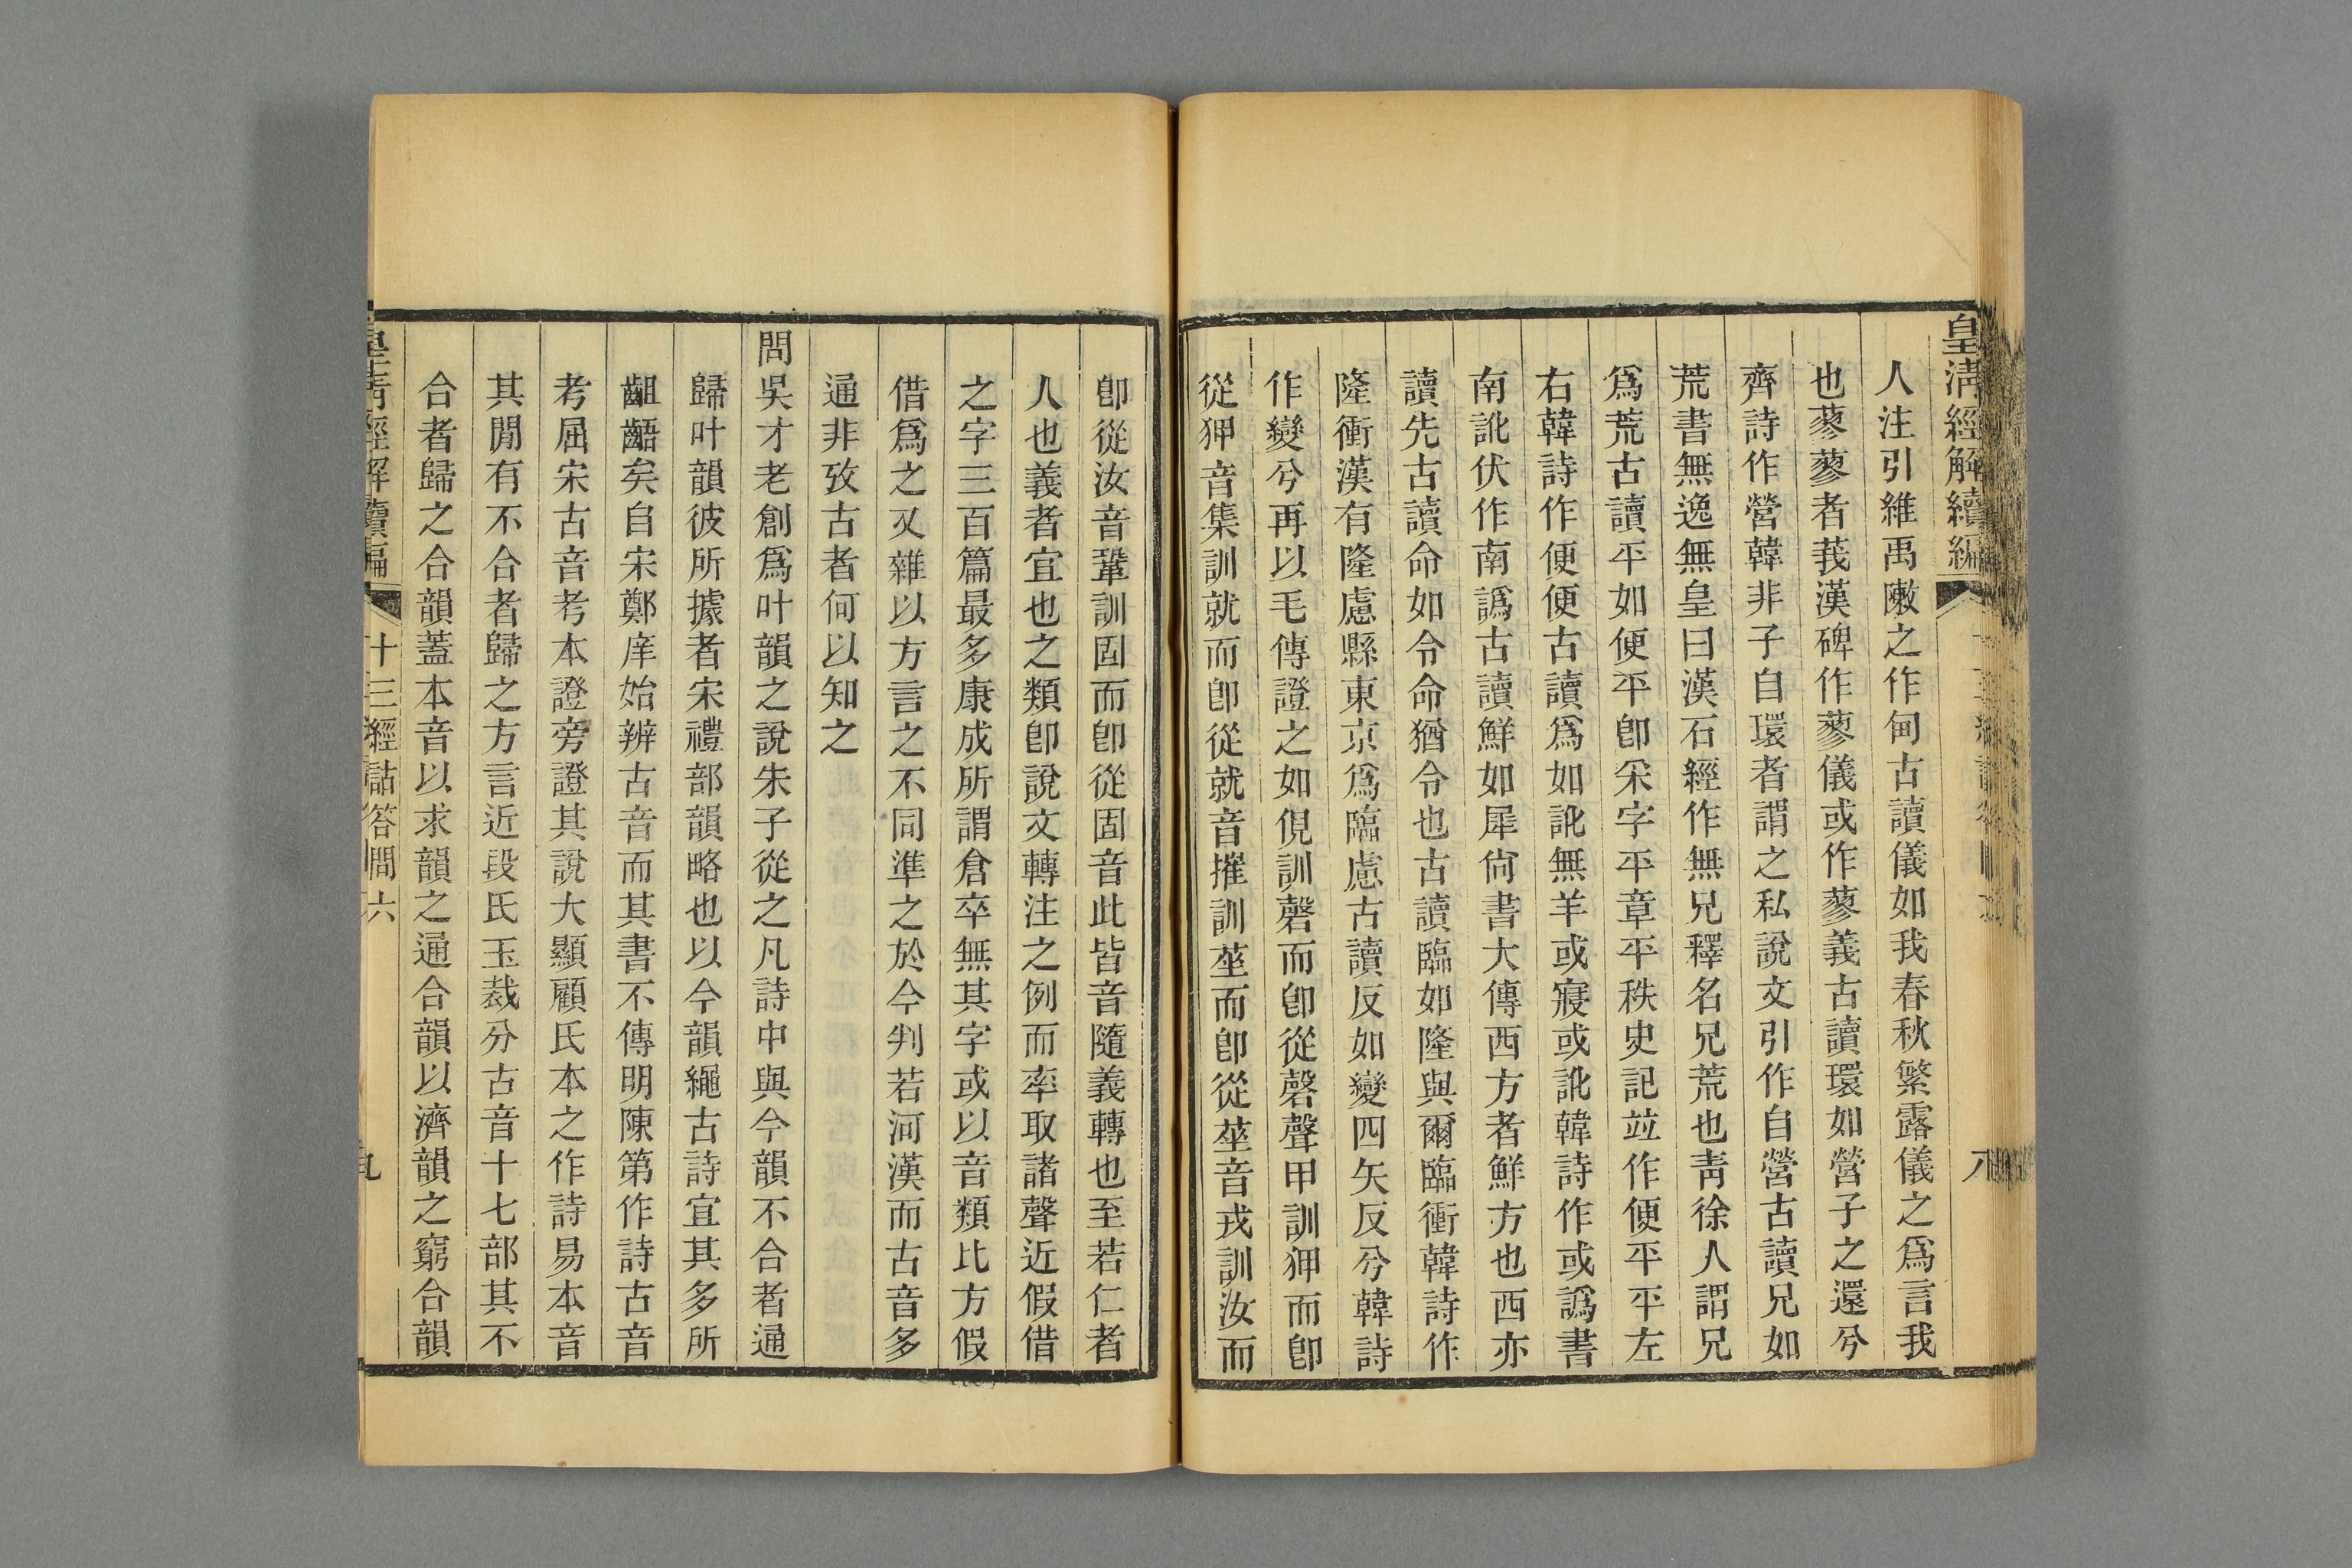 皇清經解續編
八
人注引維禹敶之作甸古讀儀如我春秋繁露儀之爲言我
也蓼蓼者莪漢碑作蓼儀或作蓼義古讀環如營子之還兮
齊詩作營韓非子自環者謂之私說文引作自營古讀兄如
荒書無逸無皇曰漢石經作無兄釋名兄荒也靑徐人謂兄
爲荒古讀平如便平卽釆字平章平秩史記竝作便平平左
右韓詩作便便古讀爲如訛無羊或寢或訛韓詩作或譌書
南訛伏作南譌古讀鮮如犀尙書大傳西方者鮮方也西亦
讀先古讀命如令命猶令也古讀臨如隆與爾臨衝韓詩作
隆衝漢有隆慮縣東京爲臨慮古讀反如變四矢反兮韓詩
作變兮再以毛傳證之如俔訓磬而卽從磬聲甲訓狎而卽
從狎音集訓就而卽從就音摧訓莝而卽從莝音戎訓汝而
卽從汝音鞏訓固而卽從固音此皆音隨義轉也至若仁者
人也義者宜也之類卽說文轉注之例而率取諸聲近假借
之字三百篇最多康成所謂倉卒無其字或以音類比方假
借爲之又雜以方言之不同準之於今判若河漢而古音多
通非攷古者何以知之
問吳才老創爲叶韻之說朱子從之凡詩中與今韻不合者通
歸叶韻彼所據者宋禮部韻略也以今韻繩古詩宜其多所
齟齬矣自宋鄭庠始辨古音而其書不傳明陳第作詩古音
考屈宋古音考本證旁證其說大顯顧氏本之作詩易本音
其閒有不合者歸之方言近段氏玉裁分古音十七部其不
合者歸之合韻蓋本音以求韻之通合韻以濟韻之窮合韻
皇淸經解續編
十三經詁答問六
九